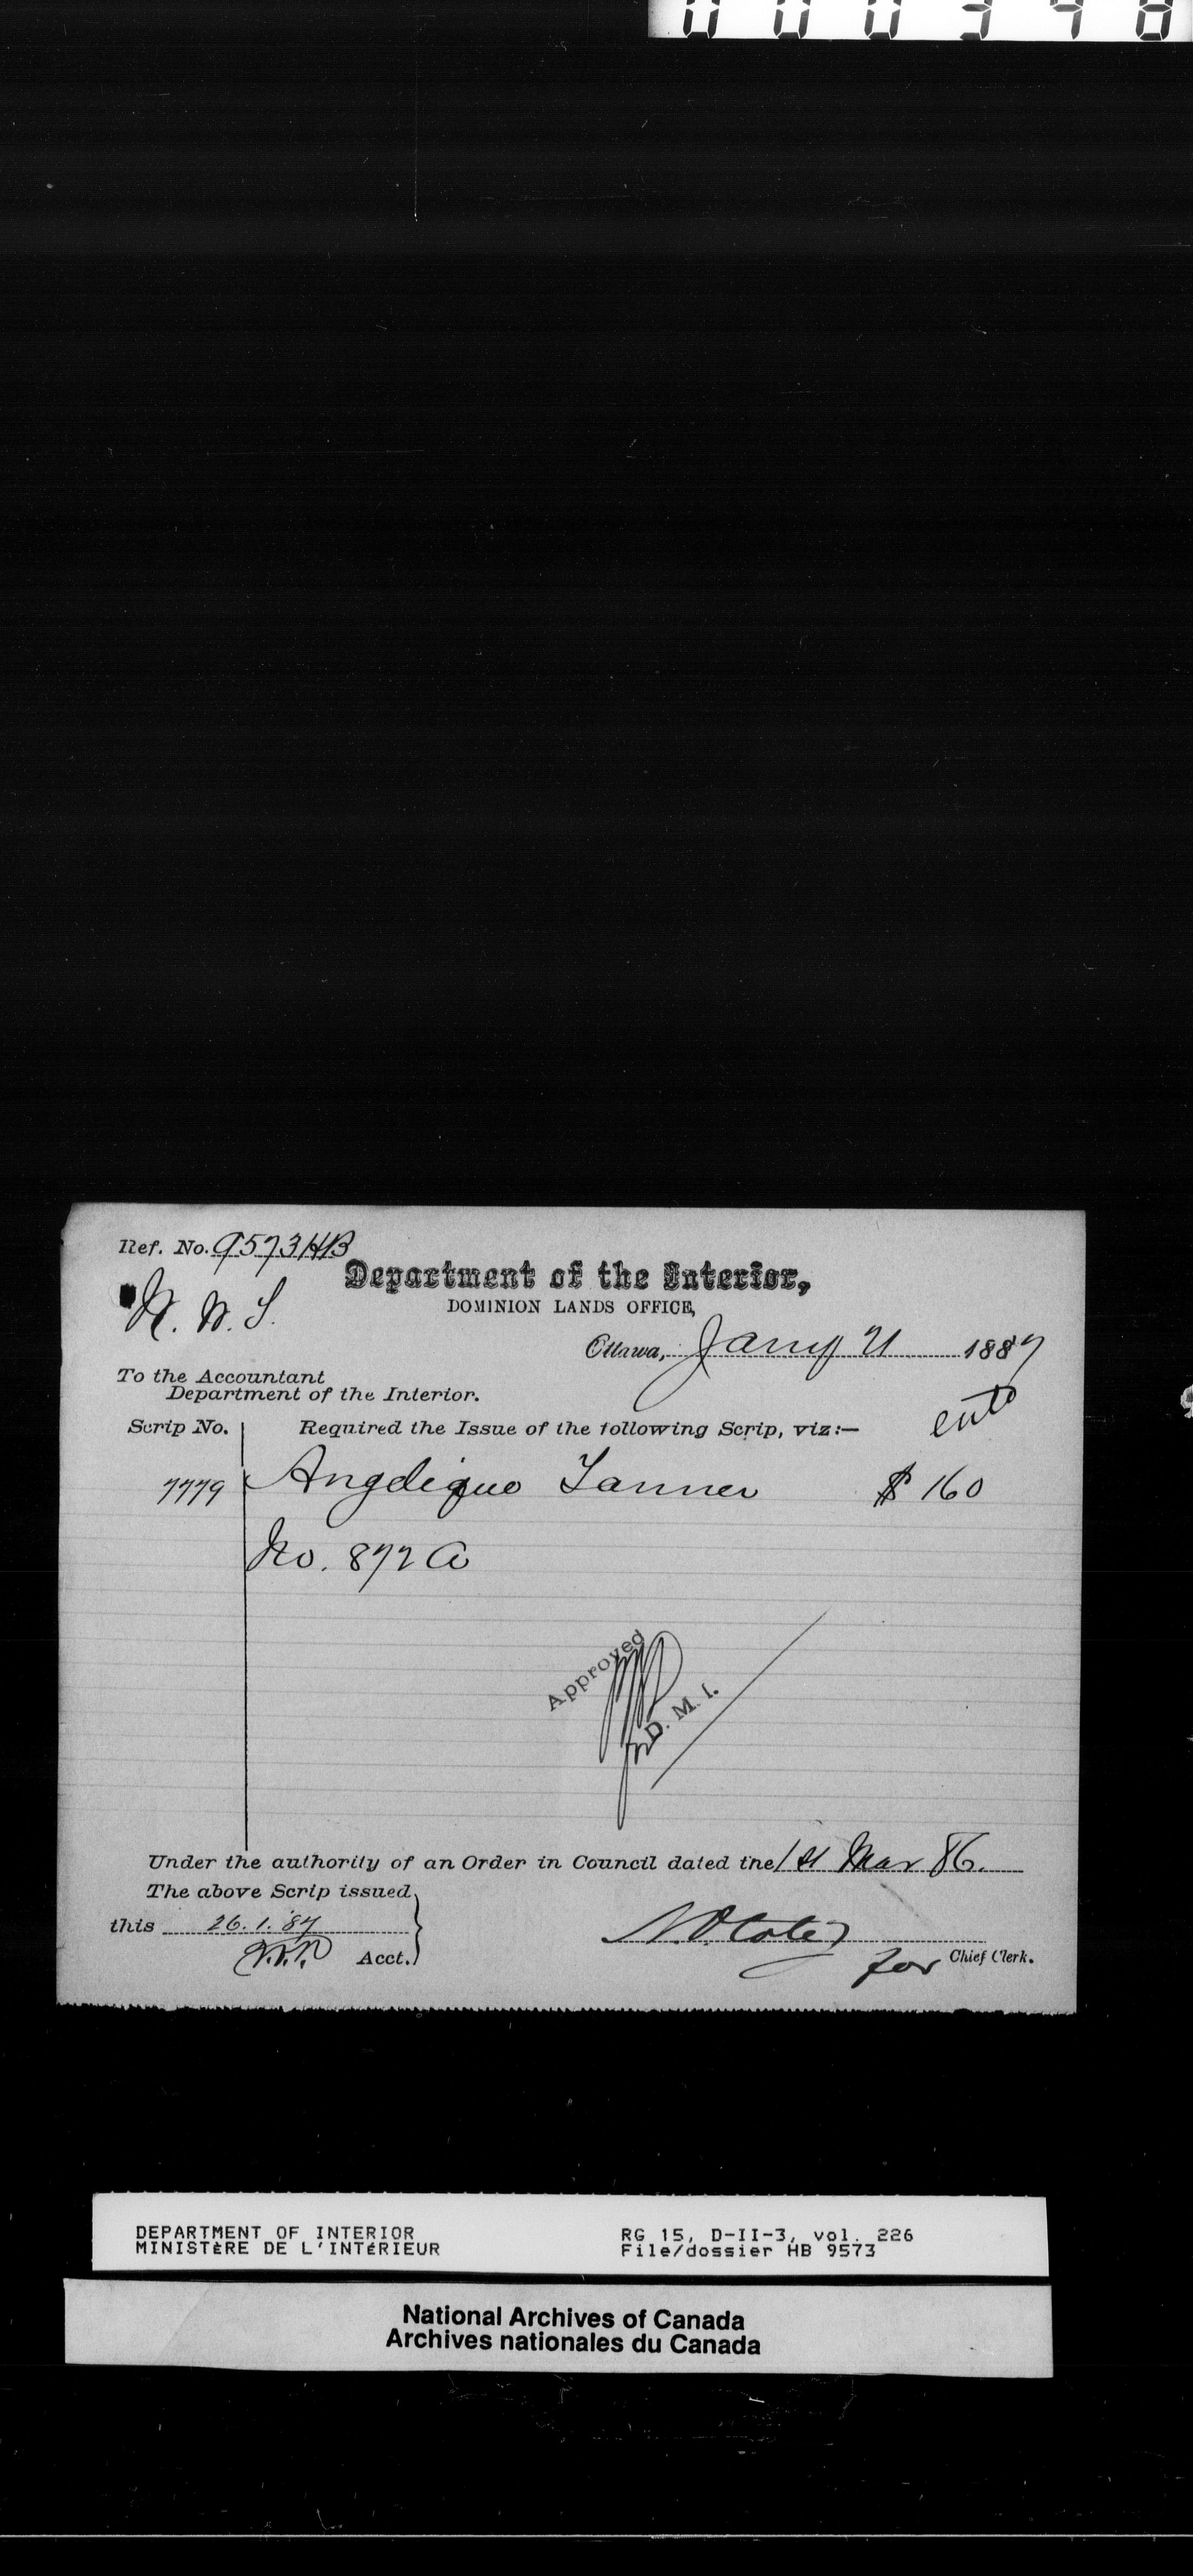 000398
Ref. No. 9573 HB
Department of the Interior,
DOMINION LANDS OFFICE,
Ottawa, Jany 21 1887
To the Accountant
Department of the Interior.
entd
Scrip No. Required the Issue of the following Scrip, viz:—
7779 Angelique Tanner $160
No. 872 a
Approved
for D. M. I.
Under the authority of an Order in Council dated the 1st Mar 86.
The above Scrip issued
this 26.1.87
Acct.
N.O. Coté
for Chief Clerk.
DEPARTMENT OF INTERIOR RG 15, D-II-3, vol. 226
MINISTÈRE DE L'INTÉRIEUR File/dossier HB 9573
National Archives of Canada
Archives nationales du Canada